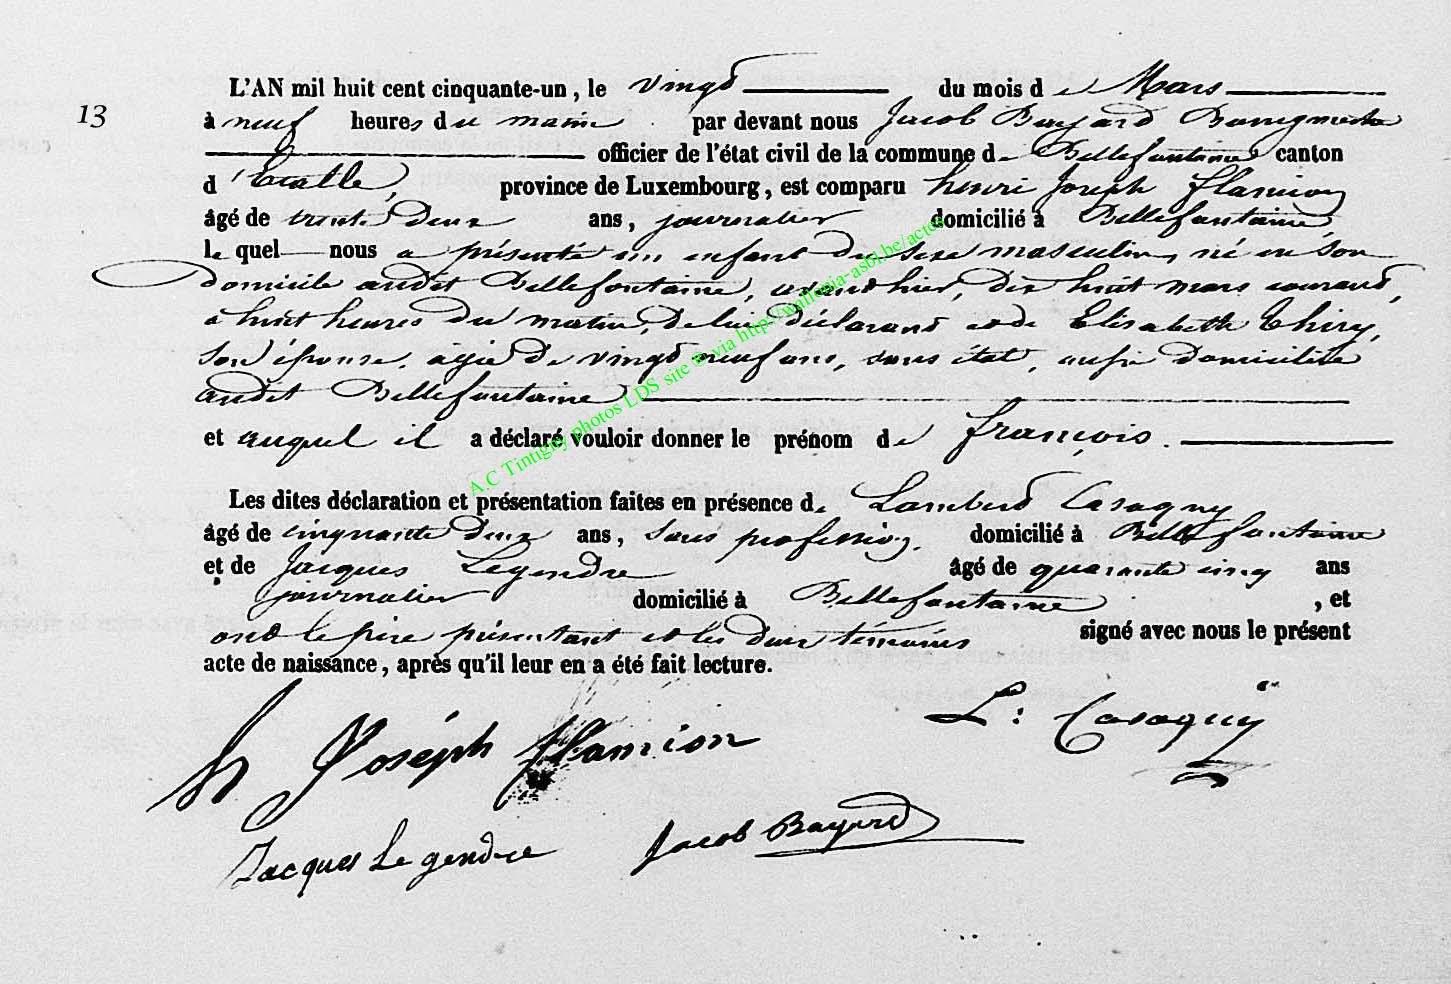 13
L'AN mil huit cent cinquante-un, le vingt du mois de Mars
à neuf heures du matin par devant nous Jacob Bayard Bourgmestre
officier de l'état civil de la commune de Bellefontaine canton
d'Etalle, province de Luxembourg, est comparu henri Joseph flamion
âgé de trente deux ans, journalier domicilié à Bellefontaine,
le quel nous a présenté un enfant du sexe masculin, né en son
domicile audit Bellefontaine, avant hier, dix huit mars courant,
à huit heures du matin, de lui déclarant et de Elisabeth Thiry,
son épouse, âgée de vingt neuf ans, sans état, aussi domiciliée
audit Bellefontaine
et auquel il a déclaré vouloir donner le prénom de françois.
Les dites déclaration et présentation faites en présence de Lambert Casaquy
âgé de cinquante deux ans, sans profession, domicilié à Bellefontaine
et de Jacques Legendre âgé de quarante cinq ans
journalier domicilié à Bellefontaine, et
ont le père présentant et les deux témoins signé avec nous le présent
acte de naissance, après qu'il leur en a été fait lecture.
L: Casaquy
h Joséph flamion
Jacques Le gendre Jacob Bayard
A.C Tintigny photos LDS site © via http://wallonia-asbl.be/actes